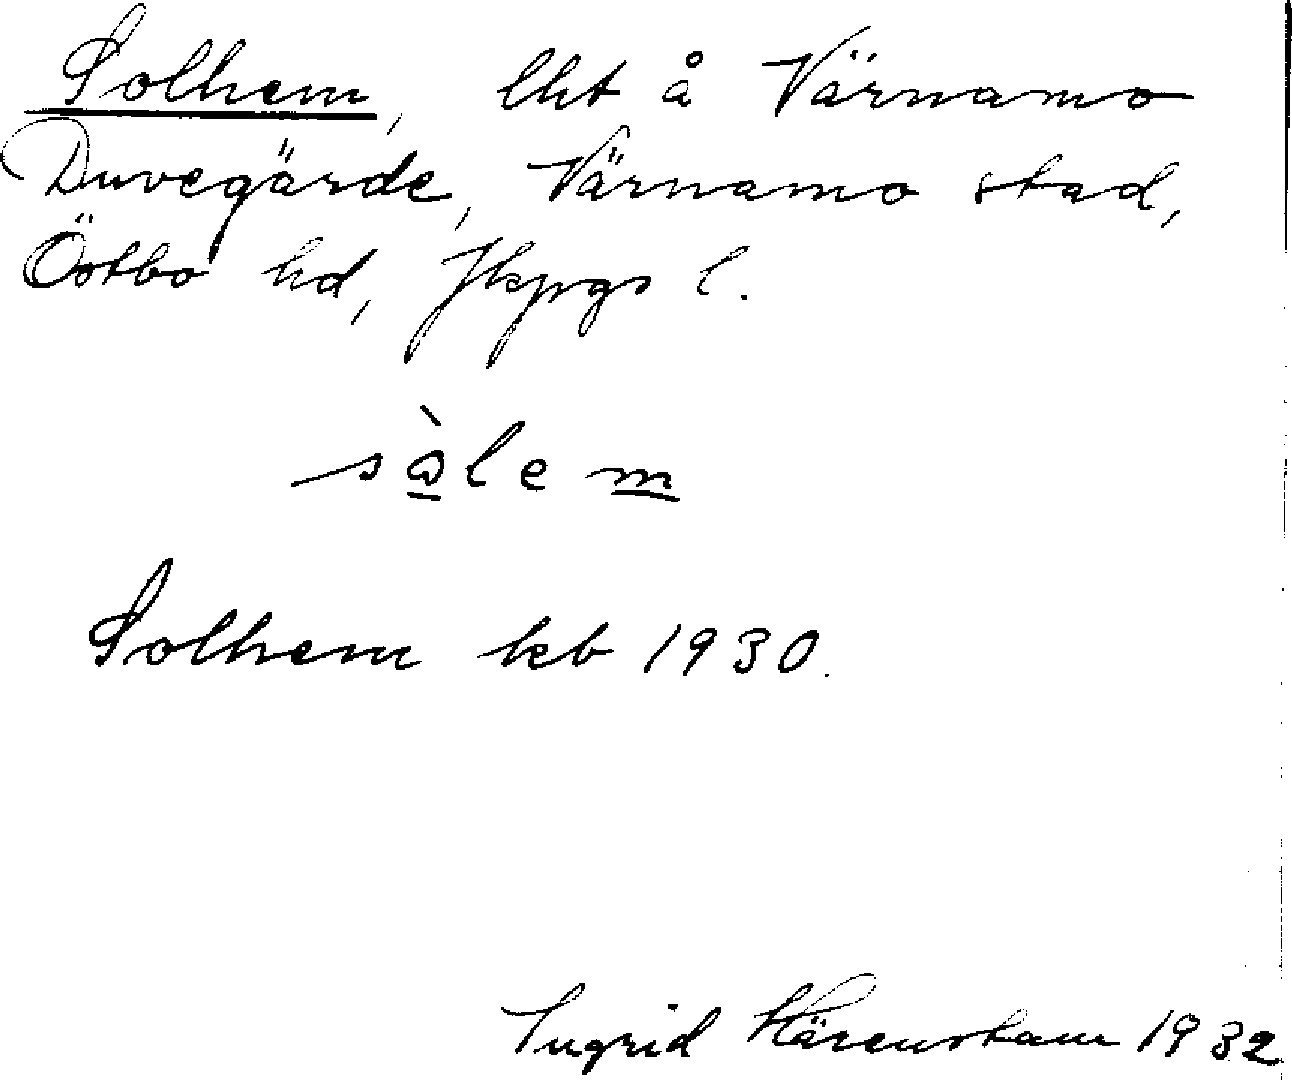 Solhem, lht å Värnamo
Duvegärde, Värnamo stad,
Östbo hd, Jkpgs l.
sὼlem
Solhem kb 1930.
Ingrid Härenstam 1932